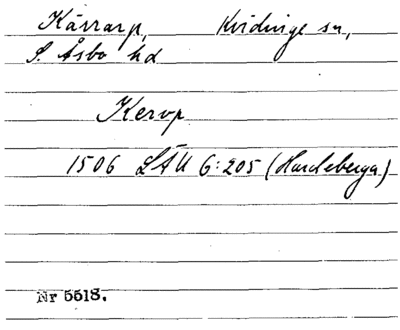 Kärrarp, Kvidinge sn,
S. Åsbo hd
Kerop
1506 LÄU 6:205 (Hardeberga)
Nr 5518.